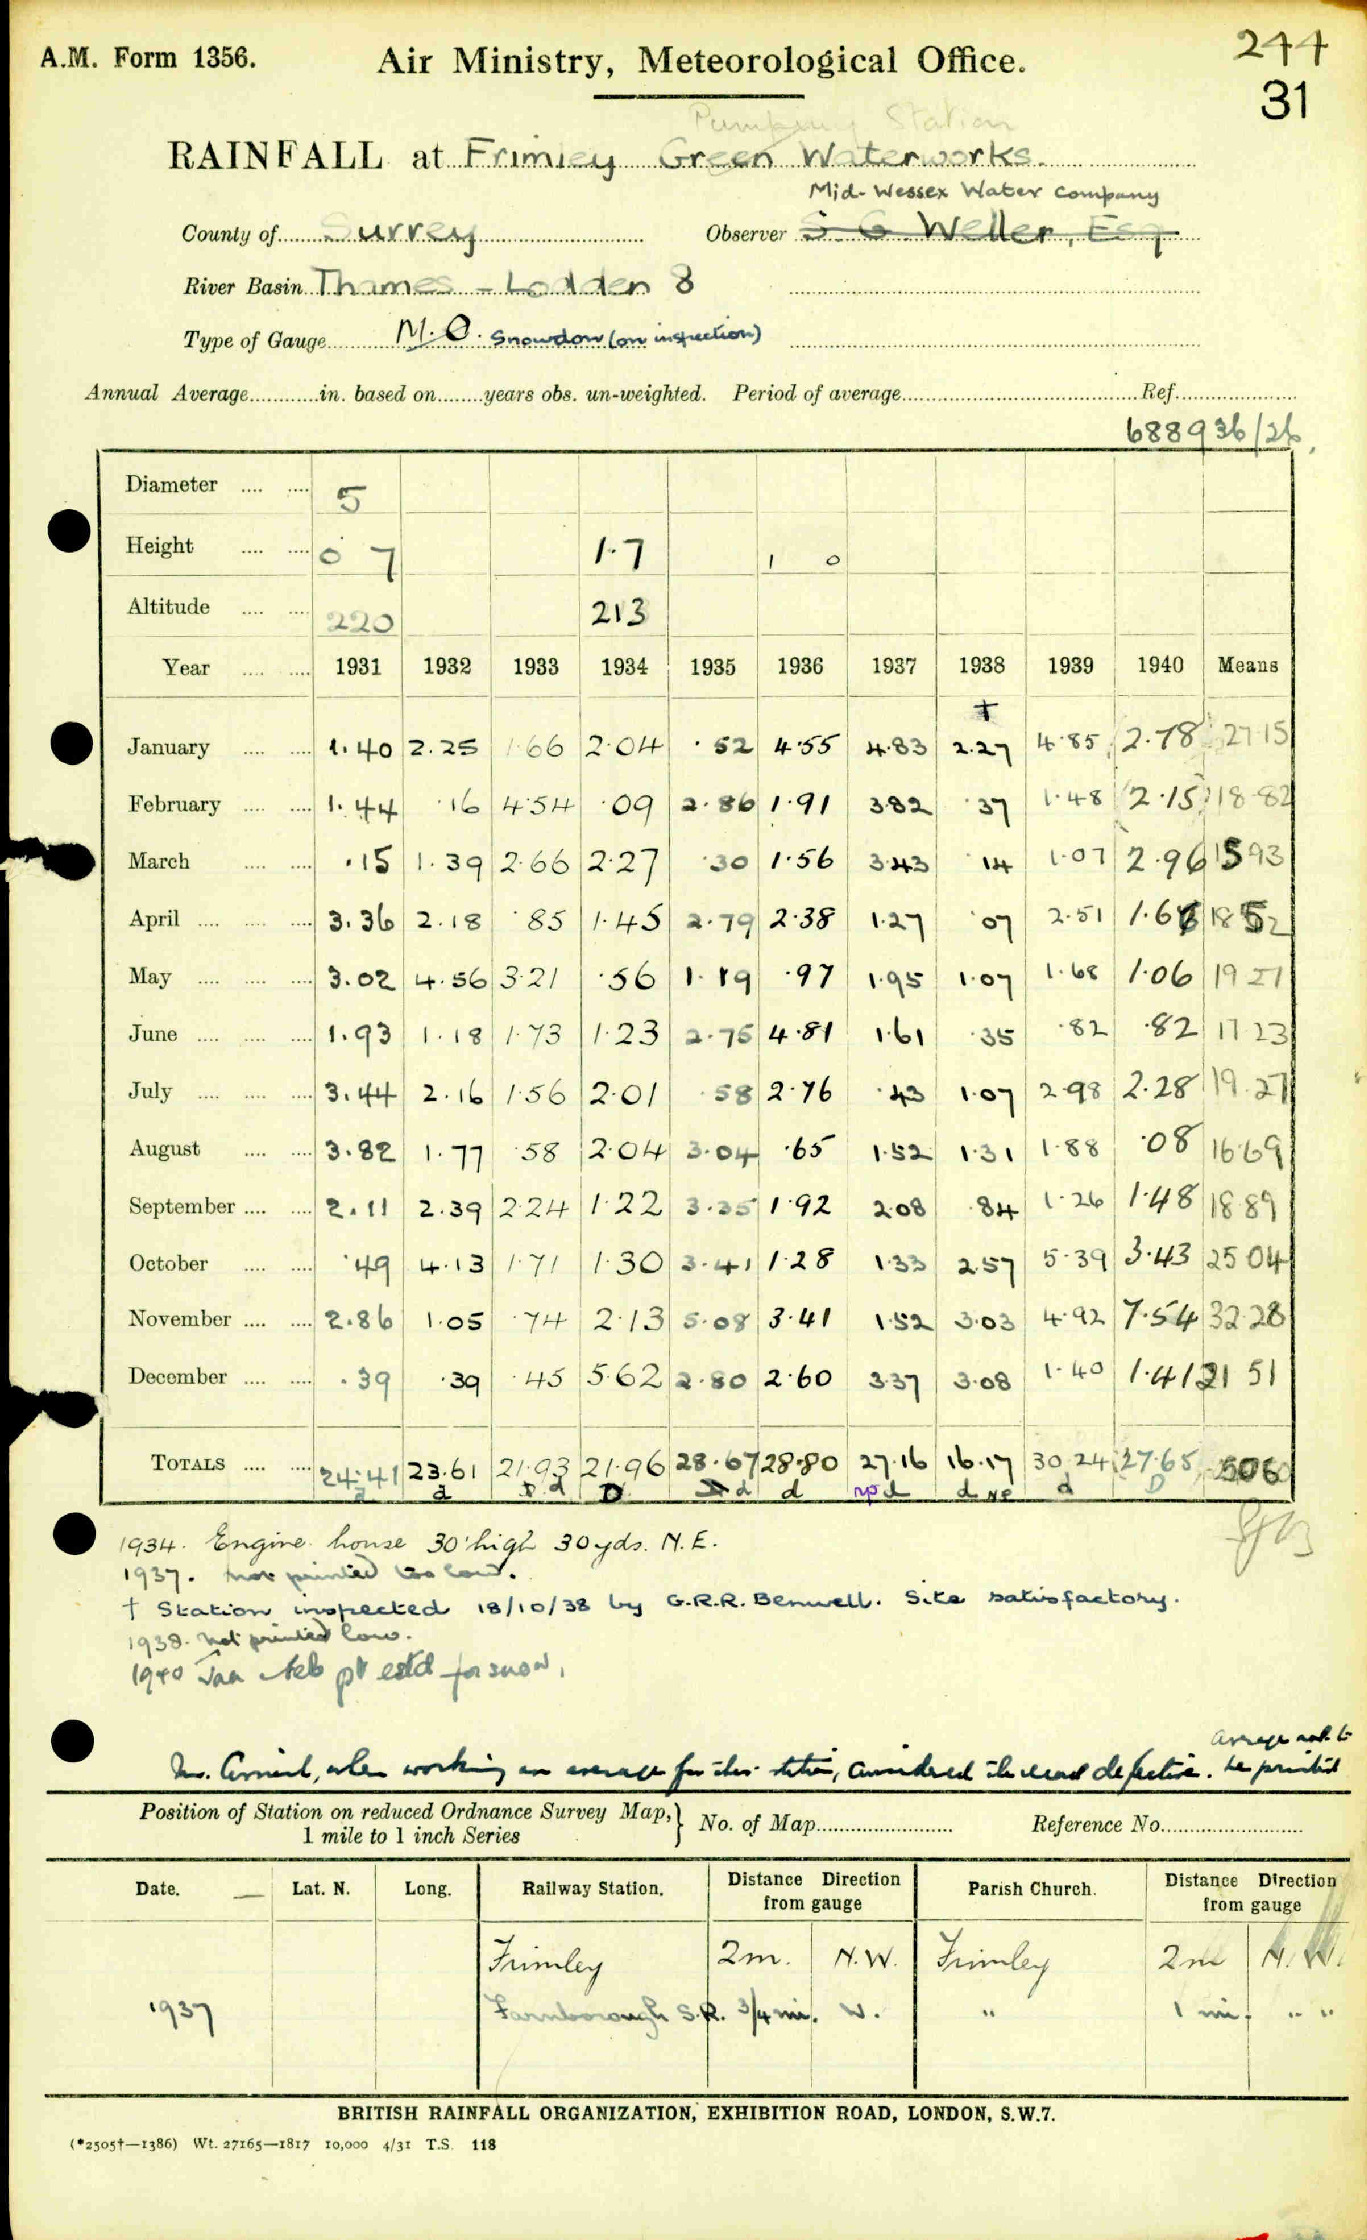 A.M. Form 1356. Air Ministry, Meteorological Office. 244
31
Pumping Station
RAINFALL at Frimley Green Waterworks.
Mid-Wessex Water Company
County of Surrey Observer S. G. Weller, Esq
River Basin Thames - Lodden 8
Type of Gauge M.O. Snowdon (on inspection)
Annual Average in. based on years obs. un-weighted. Period of average Ref.
688936/26
Diameter 5
Height 0 7 1.7 1 0
Altitude 220 213
Year 1931 1932 1933 1934 1935 1936 1937 1938 1939 1940 Means
†
January 1.40 2.25 1.66 2.04 .52 4.55 4.83 2.27 4.85 (2.78) 27.15
February 1.44 .16 4.54 .09 2.86 1.91 3.82 .37 1.48 (2.15) 18.82
March .15 1.39 2.66 2.27 .30 1.56 3.43 .14 1.07 2.96 15.93
April 3.36 2.18 .85 1.45 2.79 2.38 1.27 .07 2.51 1.66 18.52
May 3.02 4.56 3.21 .56 1.19 .97 1.95 1.07 1.68 1.06 19.27
June 1.93 1.18 1.73 1.23 2.75 4.81 1.61 .35 .82 .82 17.23
July 3.44 2.16 1.56 2.01 .58 2.76 .43 1.07 2.98 2.28 19.27
August 3.82 1.77 .58 2.04 3.04 .65 1.52 1.31 1.88 .08 16.69
September 2.11 2.39 2.24 1.22 3.35 1.92 2.08 .84 1.26 1.48 18.89
October .49 4.13 1.71 1.30 3.41 1.28 1.33 2.57 5.39 3.43 25.04
November 2.86 1.05 .74 2.13 5.08 3.41 1.52 3.03 4.92 7.54 32.28
December .39 .39 .45 5.62 2.80 2.60 3.37 3.08 1.40 1.41 21.51
TOTALS 24.41 23.61 21.93 21.96 28.67 28.80 27.16 16.17 30.24 27.65
d d D d D d d np d d NP d D
1934. Engine house 30' high 30 yds. N.E.
1937. not printed too low.
† Station inspected 18/10/38 by G.R.R. Benwell. Site satisfactory.
1938. Not printed low.
1940 Jan Feb pt estd for snow.
average not to
when working an average for this station, considered the record defective. be printed
Position of Station on reduced Ordnance Survey Map, } No. of Map Reference No.
1 mile to 1 inch Series
Date. Lat. N. Long. Railway Station. Distance Direction from gauge Parish Church. Distance Direction from gauge
Frimley 2m. N.W. Frimley 2m N.W.
1937 Farnborough S.R. 3/4 mi. W. " 1 mi. " "
BRITISH RAINFALL ORGANIZATION, EXHIBITION ROAD, LONDON, S.W.7.
(*2505†—1386) Wt. 27165—1817 10,000 4/31 T.S. 118